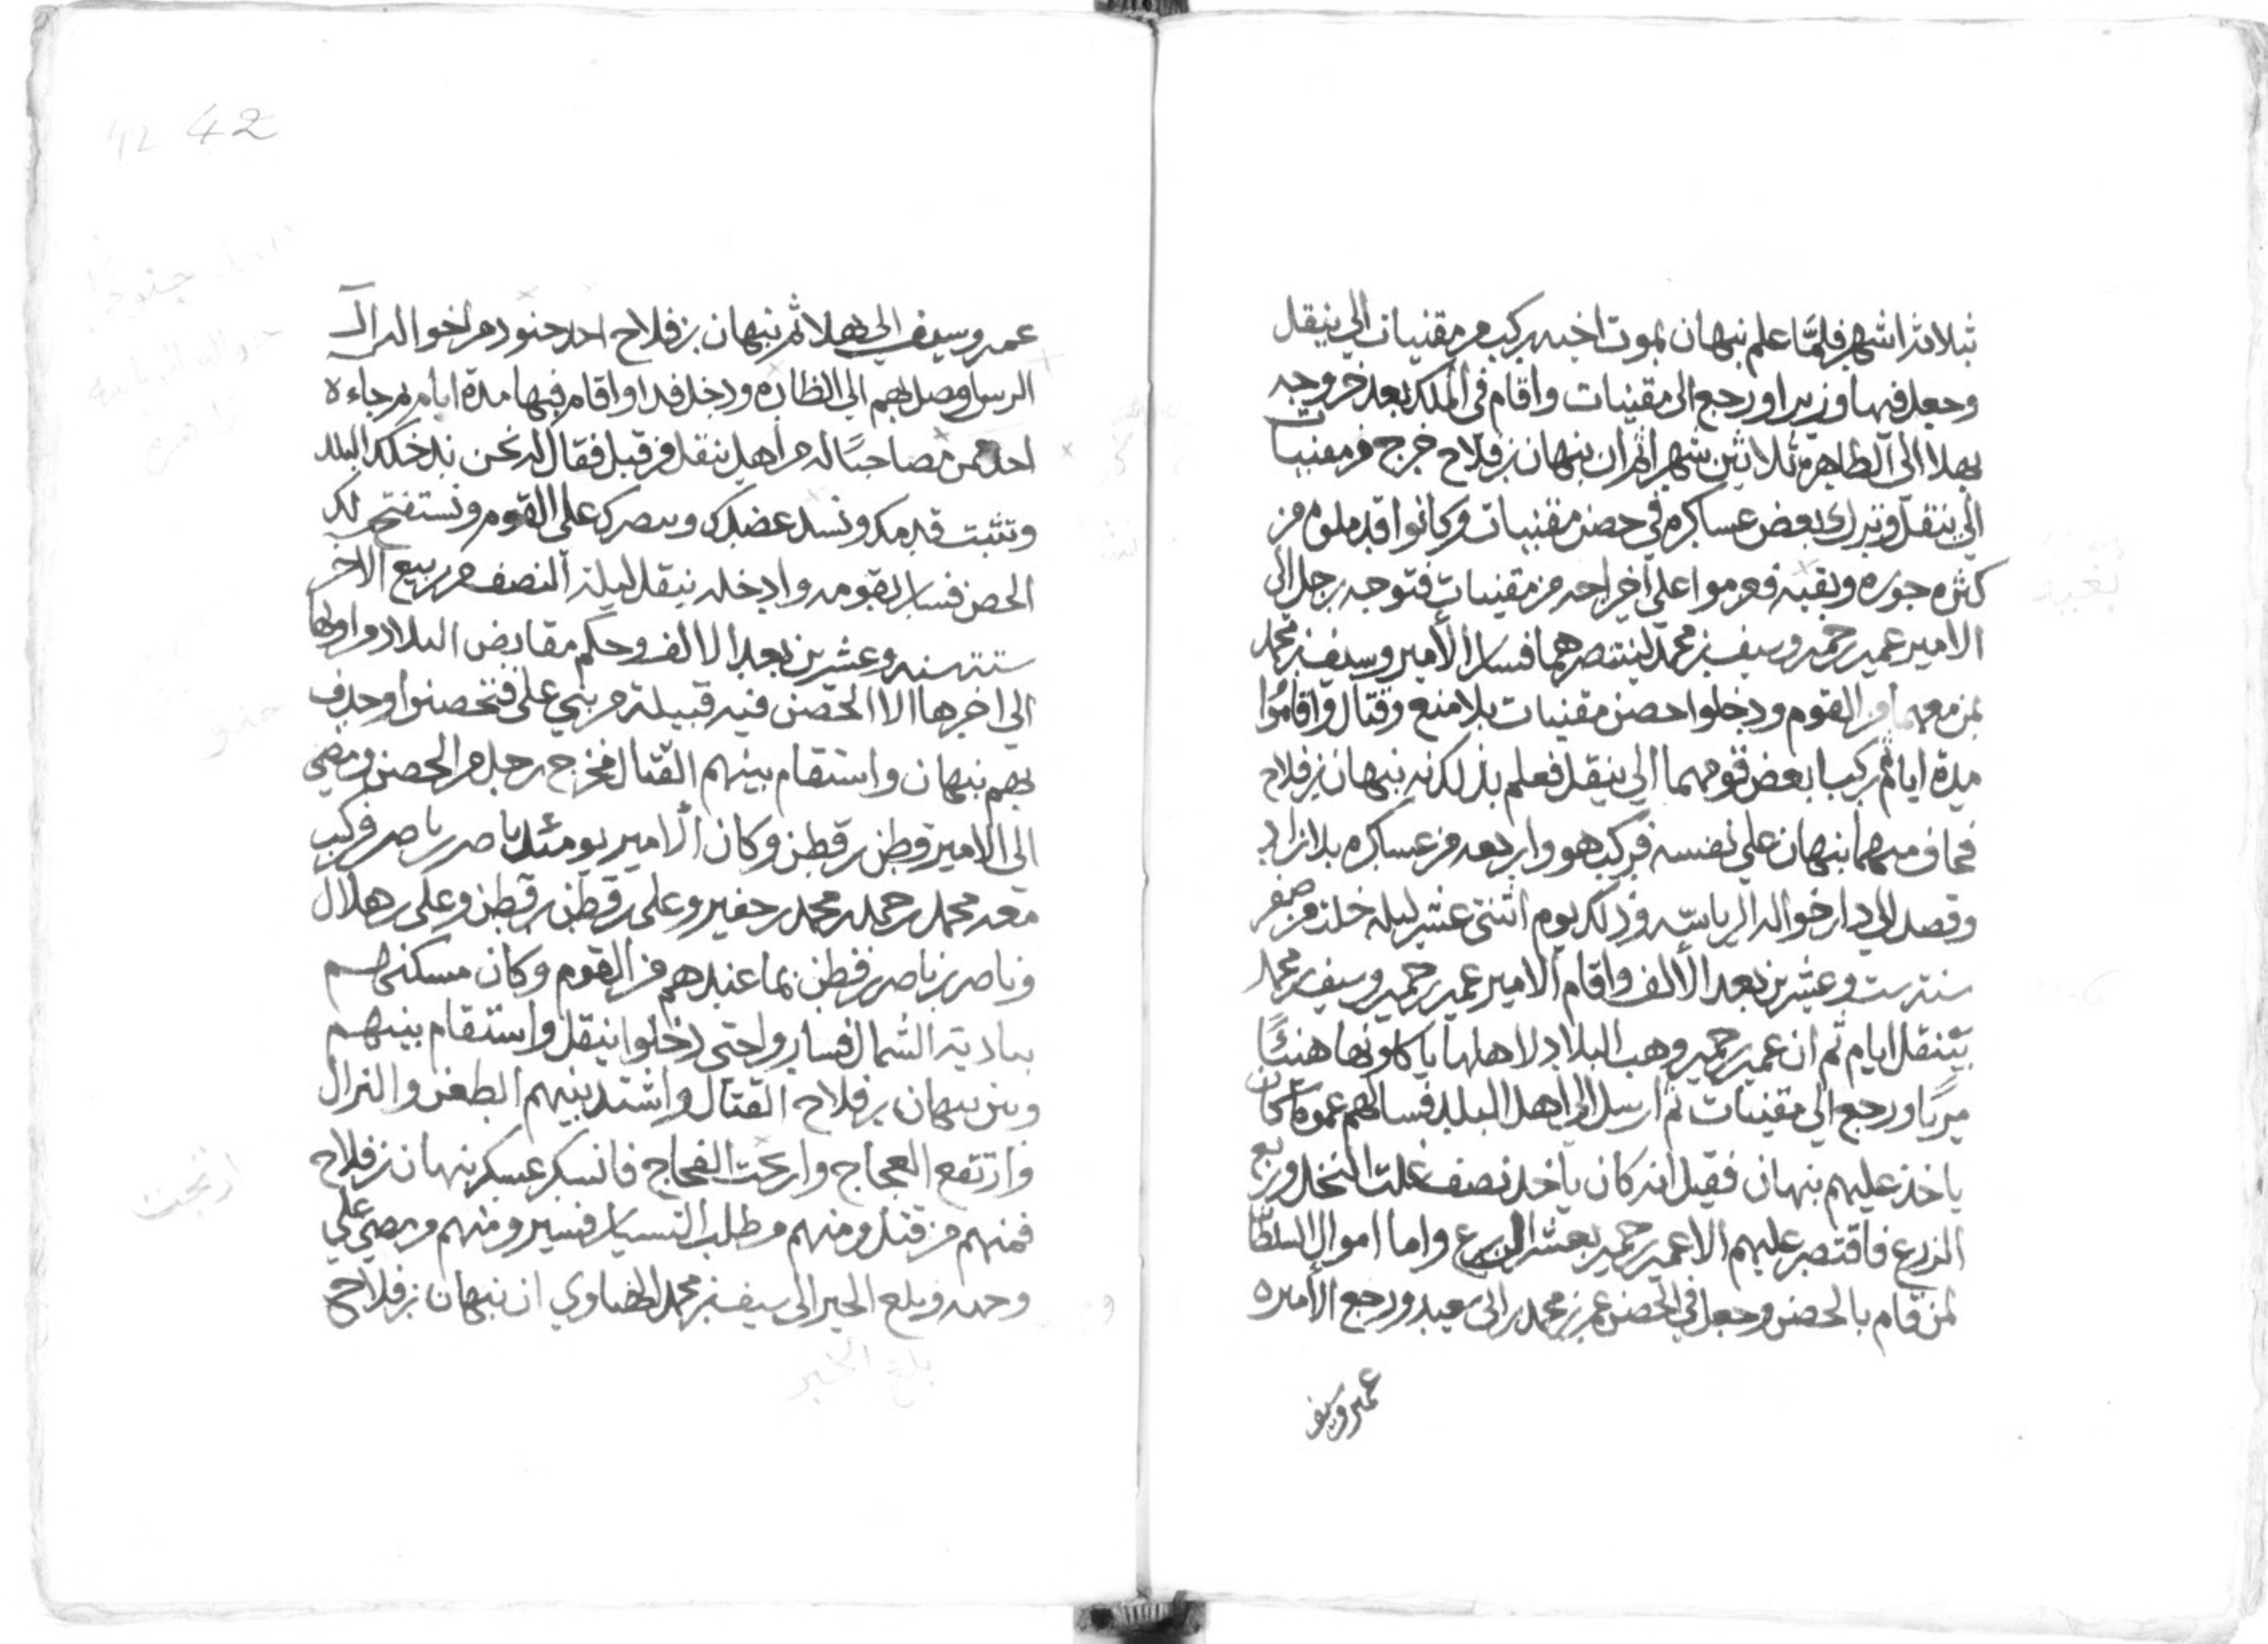 ثلاثة اشهر فلمّا علم نبهان بموت اخيه ركب من مقنيات الي ينقل
وجعل فيها وزيرا ورجع الى مقنيات واقام في الملك بعد خروجه
بهلا الى الظاهرة ثلاثين شهرا ثم ان نبهان بن فلاح خرج من مقنيات
الي ينقل وترك بعض عساكره في حصن مقنيات وكانوا قد ملوه من
كثره جوره وبقيه فعرموا على اخراجه من مقنيات فتوجه رجل الى
الامير عمير حمير وسيف بن محمد لينتصر بهما فسار الأمير وسيف بن محمد
بمن معهما من القوم ودخلوا حصن مقنيات بلا منع وقتال واقاموا
مدة ايام ثم ركبا بعض قومهما الي ينقل فعلم بذلك نبهان بن فلاح
فخاف منهما نبهان على نفسه فركب هو واربعه من عساكره بلا زاد
وقصد الي دار اخواله الرياسه وذلك يوم اثنتى عشر ليله خلت من صفر
سنة ست وعشرين بعد الألف واقام الامير عمير بن حمير وسيف بن محمد
بينقل ايام ثم ان عمير بن حمير وهب البلاد لاهلها ياكلونها هنيئًا
مريًا ورجع الي مقنيات ثم ارسل الي اهل البلد فسالهم عمّا كان
ياخذ عليهم نبهان فقيل انه كان ياخذ نصف غلت النخل وربع
الزرع فاقتصر عليهم الا عمير بن حمير بعشر الزرع واما اموال السلطان
لمن قام بالحصن وجعل في الحصن عمر بن محمد بن ابي سعيد ورجع الأميره
عمير وسيف
42 42
عمير وسيف الي بهلا ثم نبهان بن فلاح اخذ جنود من اخواله ال
الريس اوصل بهم الي الظاهره ودخل فدا واقام فيها مدة ايام ثم جاءه
احد ممن مصاحبًا له من اهل ينقل من قبل فقال له نحن ندخلك البلد
ونثبت قدمك ونسد عضدك وننصرك على القوم ونستفتح لك
الحصن فسار بقومه وادخله ينقل ليلة النصف من ربيع الاخر
ستة سنه وعشرين بعد الالف وحكم مقابض البلاد من اولها
الي اخرها الا الحصن فيه قبيلة من بني علي فتحصنوا وحذف
بهم نبهان واستقام بينهم القتال فخرج رجل من الحصن ومضي
الى الامير قطن بن قطن وكان الأمير يومئذ ناصر بن ناصر فركب
معه محمد بن محمد بن محمد بن حفير وعلي بن قطن بن قطن وعلي بن هلال
وناصر بن ناصر بن قطن بما عندهم من القوم وكان مسكنهم
ببادية الشمال فساروا حتى دخلوا ينقل واستقام بينهم
وبين نبهان بن فلاح القتال واشتد بينهم الطعن والنزال
وارتفع العجاج وارتجت الفجاج فانسكر عسكر نبهان بن فلاح
فمنهم من قتل ومنهم من طلب التسيار فسير ومنهم من مضي على
وجهه وبلغ الخبر الى سيف بن محمد الهناوي ان نبهان بن فلاح
بلغ الخبر